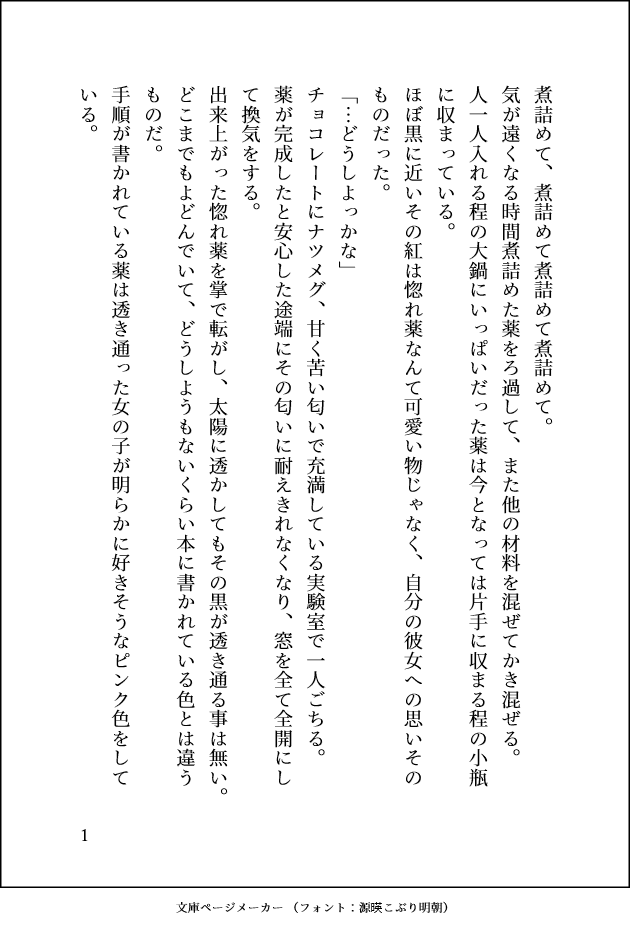 煮詰めて、煮詰めて煮詰めて煮詰めて。
気が遠くなる時間煮詰めた薬をろ過して、また他の材料を混ぜてかき混ぜる。
人一人入れる程の大鍋にいっぱいだった薬は今となっては片手に収まる程の小瓶
に収まっている。
ほぼ黒に近いその紅は惚れ薬なんて可愛い物じゃなく、自分の彼女への思いその
ものだった。
「…どうしよっかな」
チョコレートにナツメグ、甘く苦い匂いで充満している実験室で一人ごちる。
薬が完成したと安心した途端にその匂いに耐えきれなくなり、窓を全て全開にし
て換気をする。
出来上がった惚れ薬を掌で転がし、太陽に透かしてもその黒が透き通る事は無い。
どこまでもよどんでいて、どうしようもないくらい本に書かれている色とは違う
ものだ。
手順が書かれている薬は透き通った女の子が明らかに好きそうなピンク色をして
いる。
1
文庫ページメーカー（フォント：源暎こぶり明朝）